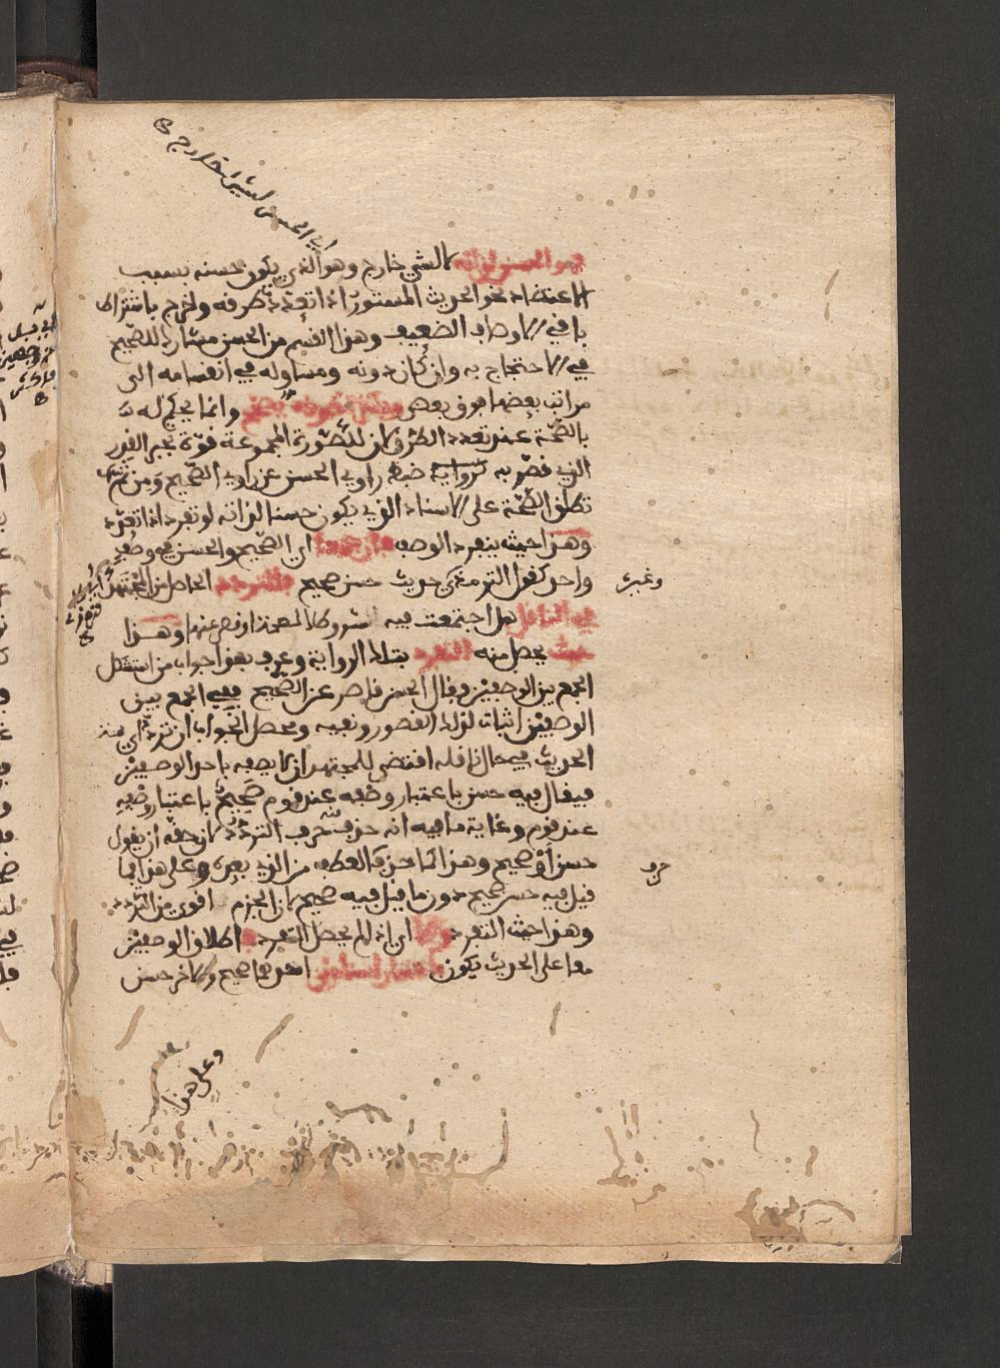 اي الحسن لشيء خارج
هو الحسن لذاته لا لشيء خارج وهو الذي يكون حسنه بسبب
الاعتضاد نحو الحديث المستور اذا تعددت طرقه وخرج باشتراط
باقي الاوصاف الضعيف وهذا القسم من الحسن مشارك للصحيح
في الاحتجاج به وان كان دونه ومشابه له في انقسامه الى
مراتب بعضها فوق بعض وبكثرة طرقه يصحح وانما يحكم له
بالصحة عند تعدد الطرق لان للصورة المجموعة قوة تجبر القدر
الذي قصر به ضبط راوي الحسن عن راوي الصحيح ومن ثم
تطلق الصحة على الاسناد الذي يكون حسنا لذاته لو تفرد اذا تعدد
وهذا حيث ينفرد الوصف فان جمعا اي الصحيح والحسن في وصف
واحد كقول الترمذي حديث حسن صحيح فللتردد الحاصل من المجتهد
في الناقل هل اجتمعت فيه شروط الصحة او قصر عنها وهذا
حيث يحصل منه التفرد بتلك الرواية وعرف بهذا جواب من استشكل
الجمع بين الوصفين وقال الحسن قاصر عن الصحيح ففي الجمع بين
الوصفين اثبات لذلك القصور ونفيه ومحصل الجواب ان تردد ائمة
الحديث في حال ناقله اقتضى للمجتهد ان لا يصفه باحد الوصفين
فيقال فيه حسن باعتبار وصفه عند قوم صحيح باعتبار وصفه
عند قوم وغاية ما فيه انه حذف منه حرف التردد لان حقه ان يقول
حسن او صحيح وهذا كما حذف العطف من الذي بعده وعلى هذا فما
قيل فيه حسن صحيح دون ما قيل فيه صحيح لان الجزم اقوى من التردد
وهذا حيث التفرد والا اي اذا لم يحصل التفرد فاطلاق الوصفين
معا على الحديث يكون باعتبار اسنادين احدهما صحيح والاخر حسن
وعلى هذا
وغيره
حرف